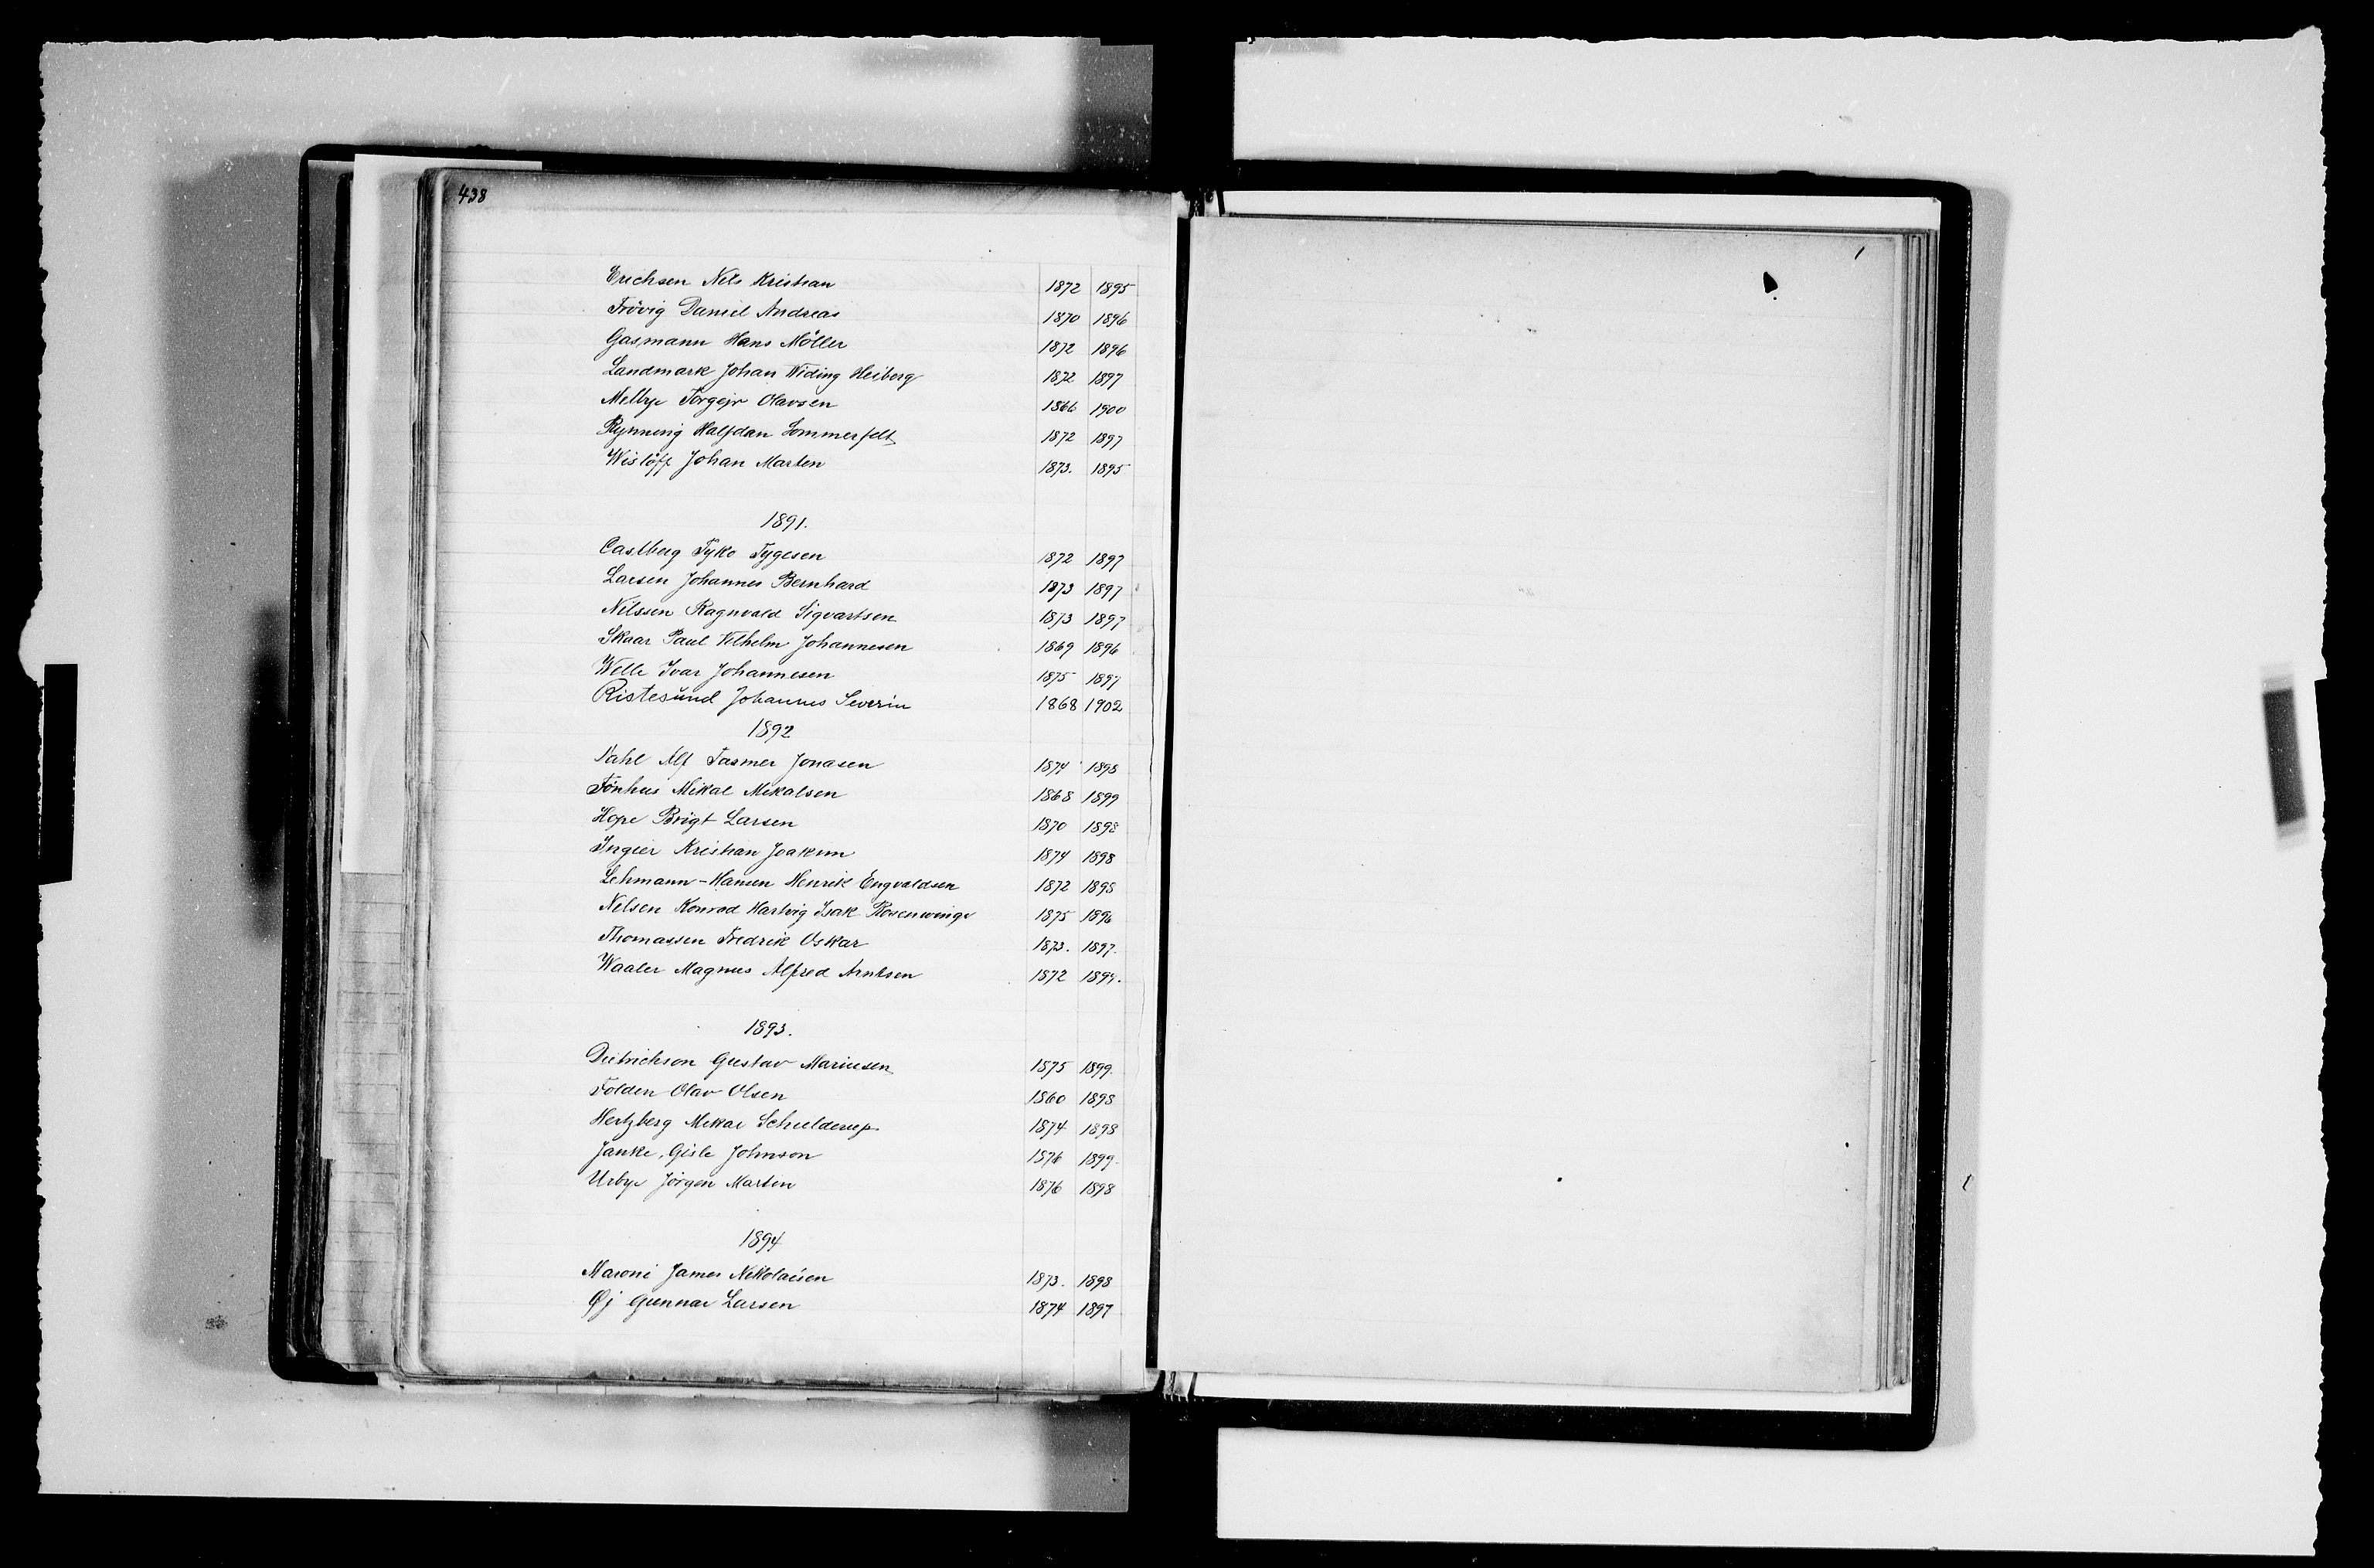 438
Erichsen Nels Kristian 1872 1895
Frövig Daniel Andreas 1870 1896
Gasmann Hans Möller 1872 1896
Landmark Johan Widing Heiberg 1872 1897
Melbye Torgejr Olavsen 1866 1900
Rynning Halfdan Sommerfelt 1872 1897
Wislöff Johan Marten 1873. 1895
1891.
Castberg Tyko Tygesen 1872 1897
Larsen Johannes Bernhard 1873 1897
Nilssen Ragnvald Sigvartsen 1873 1897
Skaar Paul Vilhelm Johannesen 1869 1896
Welle Ivar Johannesen 1875 1897
Ristesund Johannes Severin 1868 1902
1892
Dahl Alf Fasmer Jonasen 1874 1898
Fönhus Mikal Mikalsen 1868 1899
Hope Brigt Larsen 1870 1898
Ingier Kristian Joakum 1874 1898
Lehmann-Hansen Henrik Engvaldsen 1872 1898
Nelsen Konrad Hartvig Isak Rosenvinge 1875 1896
Thomassen Fredrik Oskar 1873. 1897.
Waaler Magnus Alfred Arntsen 1872 1899.
1893.
Dietrichson Gustav Mariusen 1875 1899.
Folden Olav Olsen 1860 1898
Hertzberg Mikal Schielderup 1874 1898
Janke, Gisle Johnson 1876 1899.
Urbye Jörgen Martin 1876 1898
1894
Maroni James Nikolaisen 1873. 1898
Øj Gunnar Larsen 1874 1897